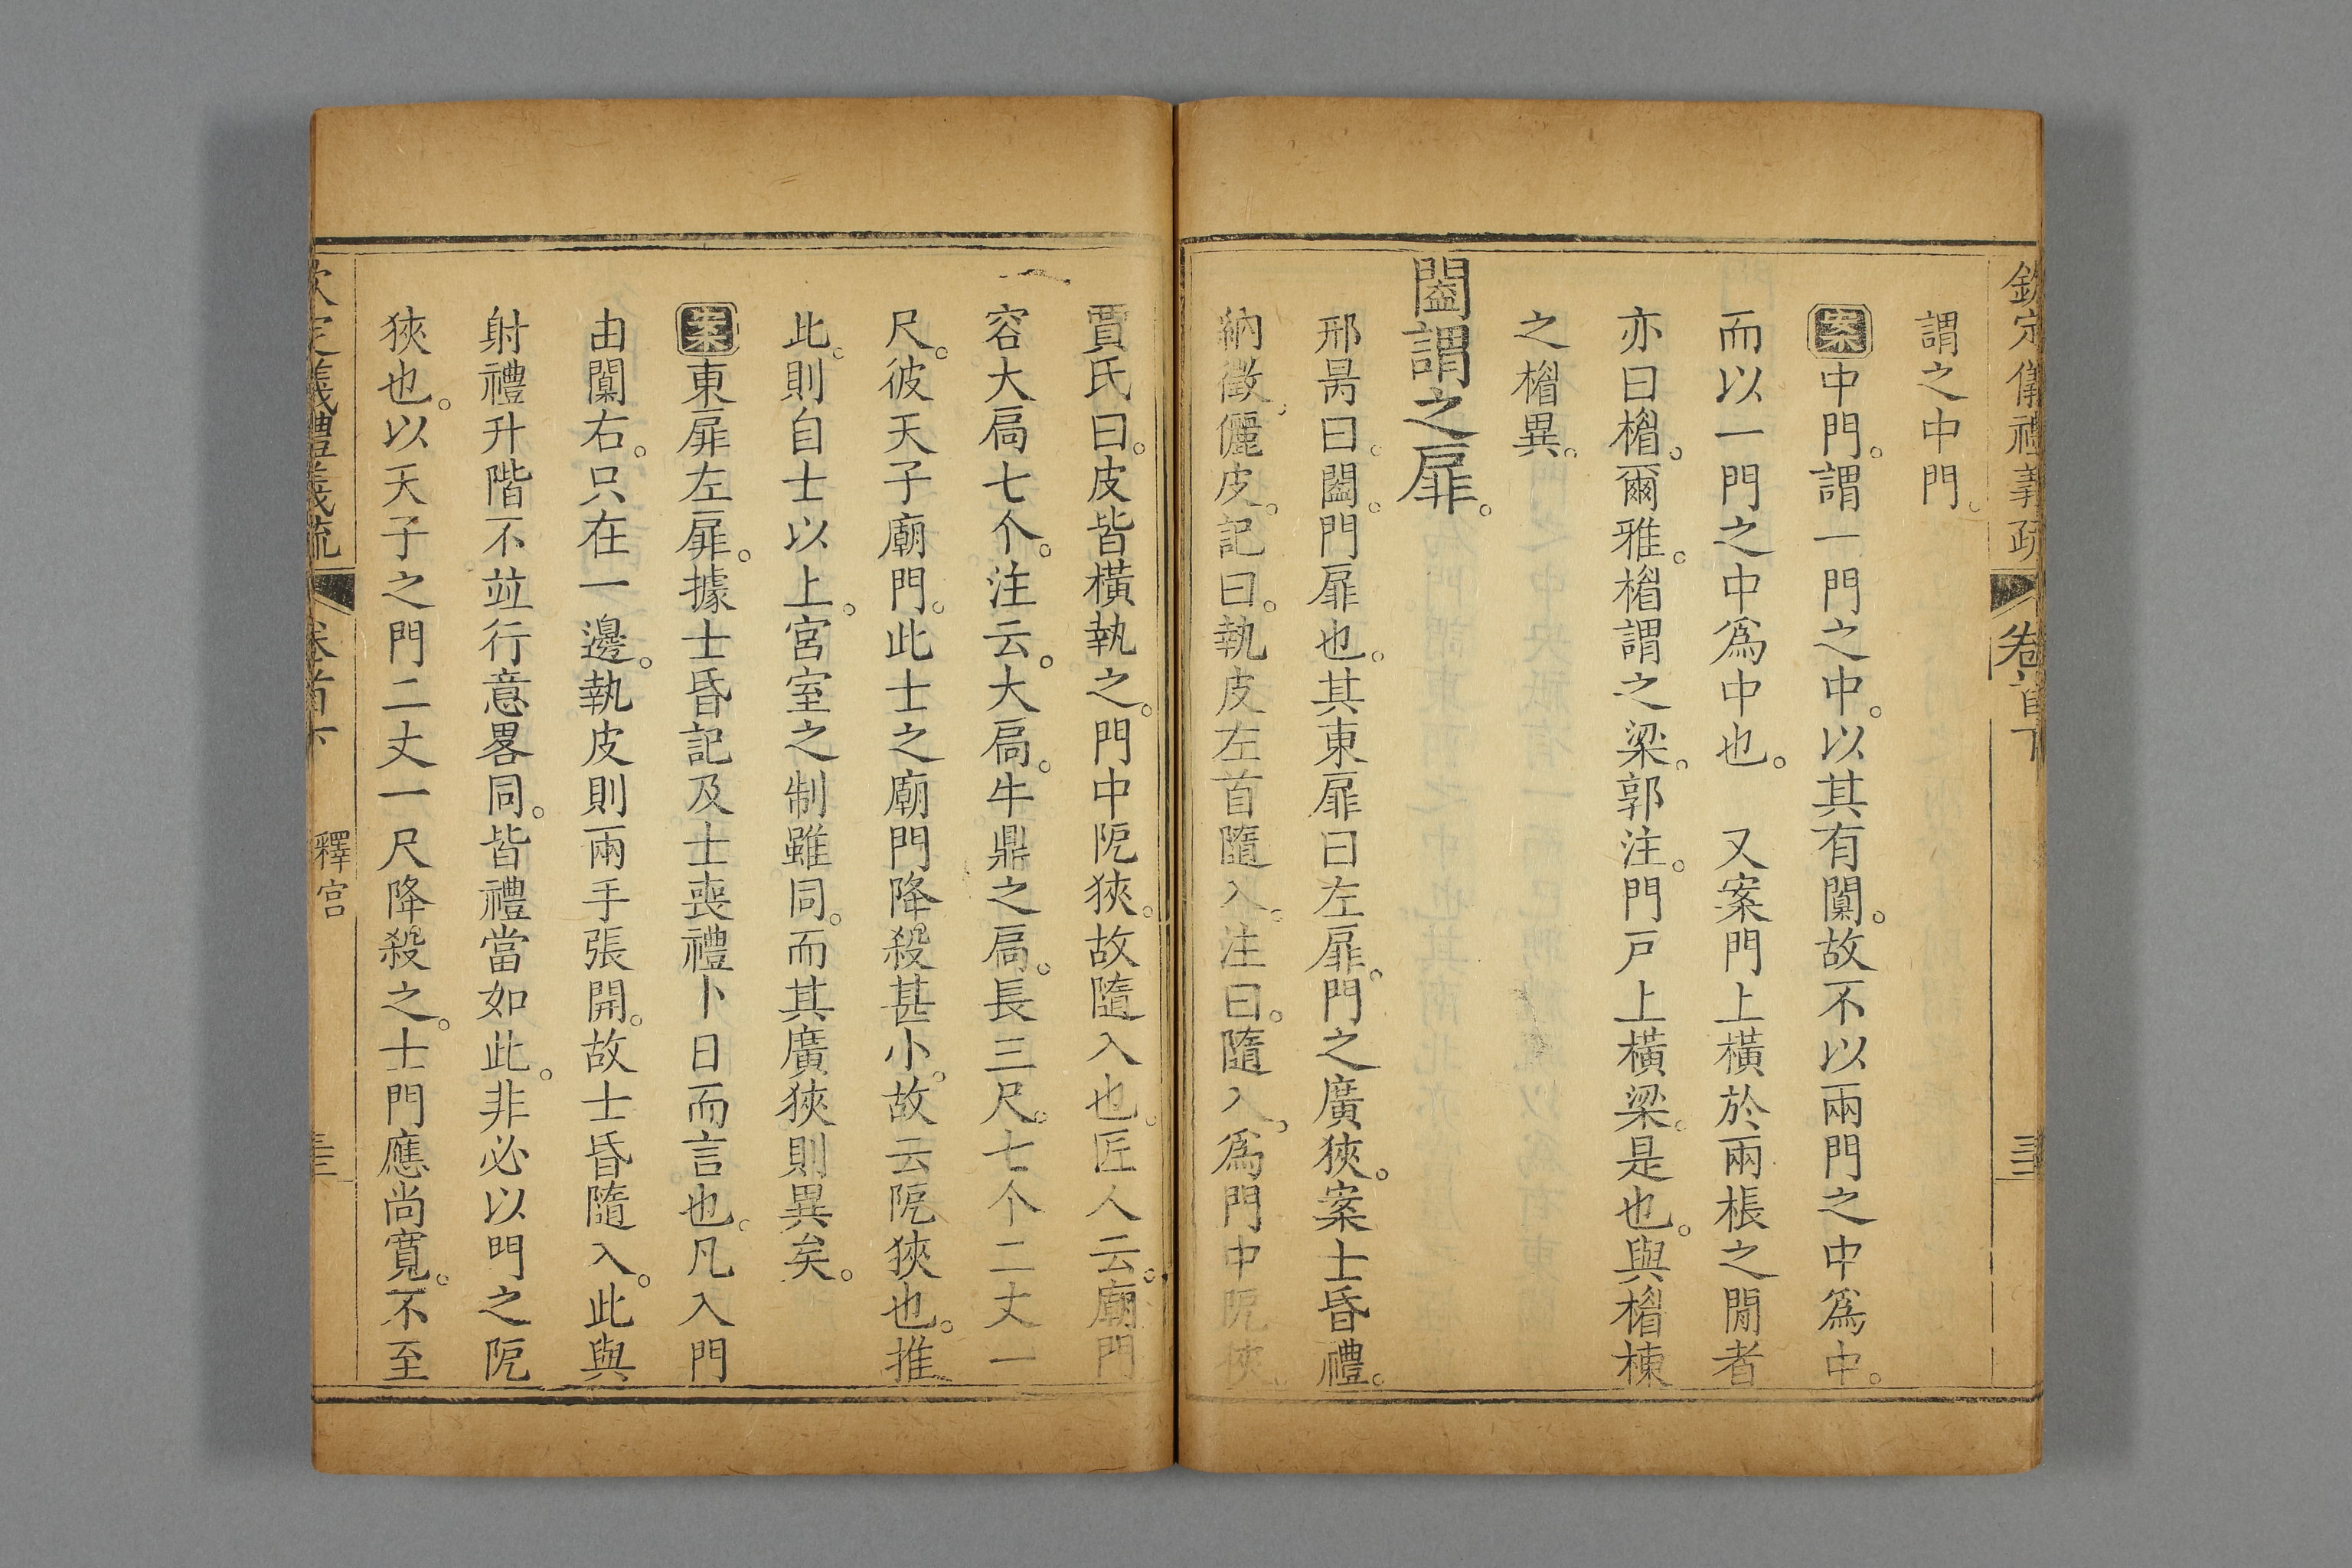 欽定儀禮義疏 卷首下 三三
謂之中門。
案中門。謂一門之中。以其有闑。故不以兩門之中爲中。
而以一門之中爲中也。 又案門上橫於兩棖之閒者
亦曰楣。爾雅。楣謂之梁。郭注。門戸上橫梁。是也。與楣棟
之楣異。
闔謂之扉。
邢昺曰。闔。門扉也。其東扉曰左扉。門之廣狹。案士昏禮。
納徵儷皮。記曰。執皮左首隨入。注曰。隨入。爲門中阨狹。
賈氏曰。皮皆橫執之。門中阨狹。故隨入也。匠人云。廟門
容大扃七个。注云。大扃。牛鼎之扃。長三尺。七个二丈一
尺。彼天子廟門。此士之廟門降殺甚小。故云阨狹也。推
此。則自士以上。宮室之制雖同。而其廣狹則異矣。
案東扉左扉。據士昏記及士喪禮卜日而言也。凡入門
由闑右。只在一邊。執皮則兩手張開。故士昏隨入。此與
射禮升階不竝行意畧同。皆禮當如此。非必以門之阨
狹也。以天子之門二丈一尺降殺之。士門應尚寬。不至
欽定儀禮義疏 卷首下 釋宮